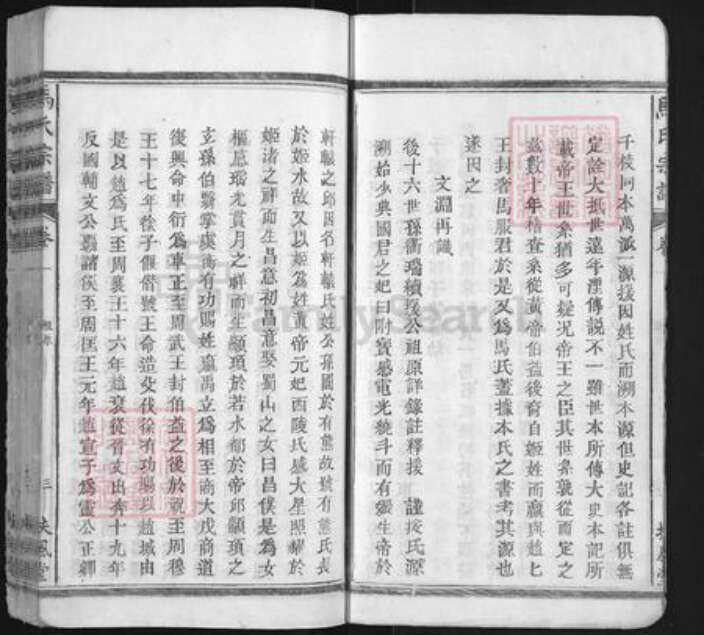 千枝同本萬派一源援因姓氏而溯本源但史記各註俱無
定詮大抵世遠年湮傳說不一雖世本所傳大史本記所
載帝王世系猶多可疑况帝王之臣其世系孰從而定之
茲數十年稽查系從黃帝伯益後裔自姬姓而嬴與趙七
王封奢馬服君於是又爲馬氏蓋據本氏之書考其源也
遂因之
文淵再識
後十六世孫衢瑞續援公祖原詳錄註釋援 謹按氏源
溯始少典國君之妃曰附寶感電光繞斗而有娠生帝於
軒轅之邱因名軒轅氏姓公孫國於有熊故號有熊氏長
於姬水故又以姬爲姓黃帝元妃西陵氏感大星照耀於
姬渚之祥而生昌意初昌意娶蜀山之女曰昌僕是爲女
樞感瑤光貫月之祥而生顓頊於若水都於帝邱顓頊之
玄孫伯翳掌虞衡有功賜姓嬴禹立爲相至商大戊商道
復興命中衍爲車正至周武王封伯益之後於 至周穆
王十七年徐子偃僭號王命造父伐徐有功賜以趙城由
是以趙爲氏至周襄王十六年趙衰從晉文出奔十九年
反國輔文公霸諸侯至周匡王元年趙宣子爲靈公正卿
馬氏宗譜 卷一
三 扶風堂
馬氏宗譜